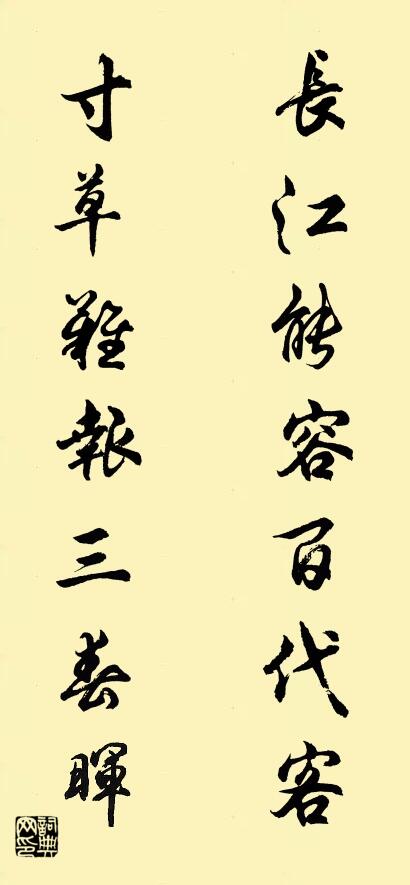 長江能容百代客
寸草難報三春暉
詞典網印